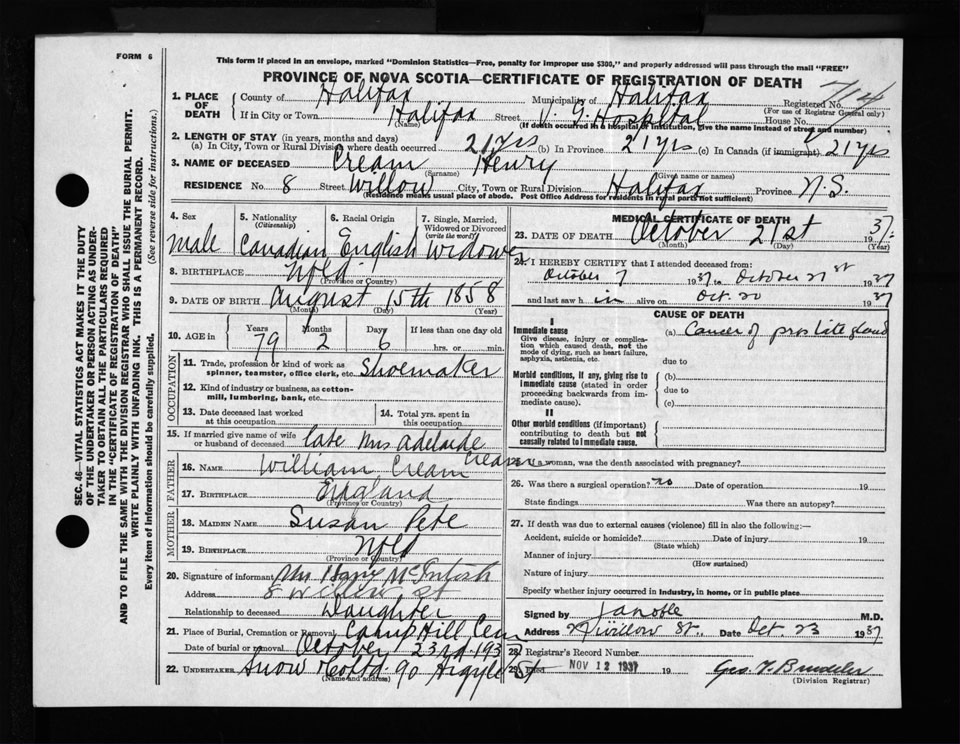 FORM 6
This form if placed in an envelope, marked "Dominion Statistics—Free, penalty for improper use $300," and properly addressed will pass through the mail "FREE"
PROVINCE OF NOVA SCOTIA—CERTIFICATE OF REGISTRATION OF DEATH
1. PLACE OF DEATH County of Halifax Municipality of Halifax Registered No. 7114
(For use of Registrar General only)
If in City or Town Halifax Street V. G. Hospital House No.
(Name) (If death occurred in a hospital or institution, give the name instead of street and number)
2. LENGTH OF STAY (in years, months and days)
(a) In City, Town or Rural Division where death occurred 21 yrs (b) In Province 21 yrs (c) In Canada (if immigrant) 21 yrs
3. NAME OF DECEASED Cream Henry
(Surname) (Given name or names)
RESIDENCE No. 8 Street Willow City, Town or Rural Division Halifax Province N.S.
(Residence means usual place of abode. Post Office Address for residents in rural parts not sufficient)
4. Sex 5. Nationality (Citizenship) 6. Racial Origin 7. Single, Married, Widowed or Divorced (write the word)
Male Canadian English Widower
8. BIRTHPLACE Nfld
(Province or Country)
9. DATE OF BIRTH August 15th 1858
(Month) (Day) (Year)
10. AGE in Years Months Days If less than one day old
79 2 6 hrs. or min.
OCCUPATION
11. Trade, profession or kind of work as spinner, teamster, office clerk, etc. Shoemaker
12. Kind of industry or business, as cotton-mill, lumbering, bank, etc.
13. Date deceased last worked at this occupation
14. Total yrs. spent in this occupation
15. If married give name of wife or husband of deceased late Mrs Adelaide Cream
FATHER
16. NAME William Cream
17. BIRTHPLACE England
(Province or Country)
MOTHER
18. MAIDEN NAME Susan Pete
19. BIRTHPLACE Nfld
(Province or Country)
20. Signature of informant Mrs McIntosh
Address 8 Willow St
Relationship to deceased Daughter
21. Place of Burial, Cremation or Removal Camp Hill Cem
Date of burial or removal October 23rd 193
22. UNDERTAKER Snow & Co Ltd. 90 Argyle St
(Name and address)
MEDICAL CERTIFICATE OF DEATH
23. DATE OF DEATH October 21st 1937
(Month) (Day)
24. I HEREBY CERTIFY that I attended deceased from:
October 7 1937 to October 21st 1937
and last saw him alive on Oct. 20 1937
CAUSE OF DEATH
I
Immediate cause
Give disease, injury or complication which caused death, not the mode of dying, such as heart failure, asphyxia, asthenia, etc.
(a) Cancer of prostate gland
due to
Morbid conditions, if any, giving rise to immediate cause (stated in order proceeding backwards from immediate cause).
(b)
due to
(c)
II
Other morbid conditions (if important) contributing to death but not causally related to immediate cause.
a woman, was the death associated with pregnancy?
26. Was there a surgical operation? no Date of operation 19
State findings Was there an autopsy?
27. If death was due to external causes (violence) fill in also the following:—
Accident, suicide or homicide? Date of injury 19
(State which)
Manner of injury
(How sustained)
Nature of injury
Specify whether injury occurred in industry, in home, or in public place
Signed by M.D.
Address Willow St. Date Oct. 23 1937
28. Registrar's Record Number
29. Filed NOV 12 1937 19
(Division Registrar)
SEC. 46—VITAL STATISTICS ACT MAKES IT THE DUTY
OF THE UNDERTAKER OR PERSON ACTING AS UNDER-
TAKER TO OBTAIN ALL THE PARTICULARS REQUIRED
IN THE "CERTIFICATE OF REGISTRATION OF DEATH"
AND TO FILE THE SAME WITH THE DIVISION REGISTRAR WHO SHALL ISSUE THE BURIAL PERMIT.
WRITE PLAINLY WITH UNFADING INK. THIS IS A PERMANENT RECORD.
Every item of information should be carefully supplied. (See reverse side for instructions.)